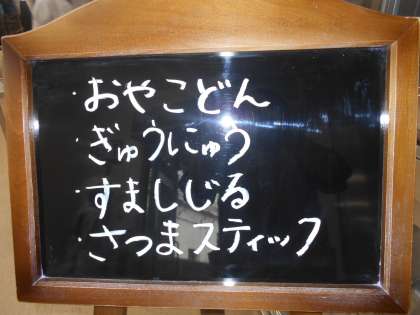 ・おやこどん
・ぎゅうにゅう
・すましじる
・さつまスティック